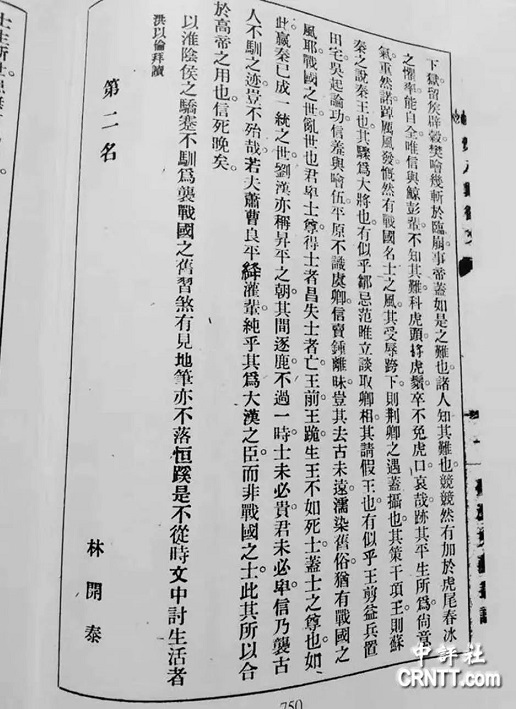 下獄留侯辟穀樊噲幾斬於臨崩事帝蓋如是之難也諸人知其難也兢兢然有加於虎尾春冰
之懼率能自全唯信與鯨彭輩不知其難料虎頭捋虎鬚卒不免虎口哀哉跡其平生所為尚意
氣重然諾踔厲風發慨然有戰國名士之風其受辱跨下則荆卿之遇蓋攝也其策干項王則蘇
秦之說秦王也其驟為大將也有似乎鄒忌范睢立談取卿相其請假王也有似乎王翦益兵置
田宅吳起論功信羞與噲伍平原不識虞卿信賣鍾離昧豈其去古未遠濡染舊俗猶有戰國之
風耶戰國之世亂世也君卑士尊得士者昌失士者亡王前王跪生王不如死士蓋士之尊也如
此嬴秦已成一統之世劉漢亦稱昇平之朝其間逐鹿不過一時士未必貴君未必卑信乃襲古
人不馴之迹豈不殆哉若夫蕭曹良平絳灌輩純乎其為大漢之臣而非戰國之士此其所以合
於高帝之用也信死晚矣
以淮陰侯之驕蹇不馴為襲戰國之舊習煞有見地筆亦不落恒蹊是不從時文中討生活者
洪以倫拜讀
第二名
林開泰
750
中評社
CRNTT.com